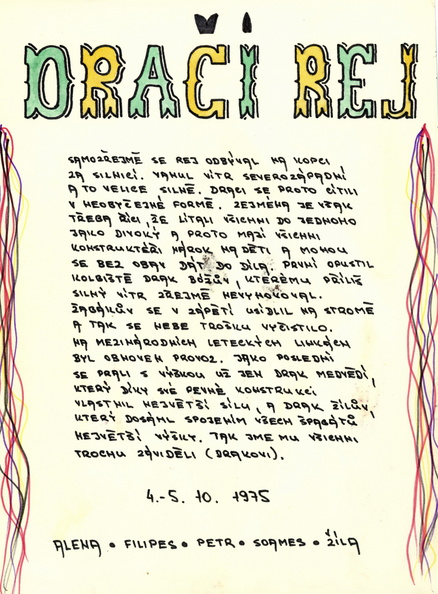 DRAČÍ REJ
SAMOZŘEJMĚ SE REJ ODBÝVAL NA KOPCI
ZA SILNICÍ. VANUL VÍTR SEVEROZÁPADNÍ
A TO VELICE SILNĚ. DRACI SE PROTO CÍTILI
V NEOBYČEJNÉ FORMĚ. ZEJMÉNA JE VŠAK
TŘEBA ŘÍCI, ŽE LÍTALI VŠICHNI DO JEDNOHO
JAKO DIVOKÝ A PROTO MAJÍ VŠICHNI
KONSTRUKTÉŘI NÁROK NA DĚTI A MOHOU
SE BEZ OBAV DÁT DO DÍLA. PRVNÍ OPUSTIL
KOLBIŠTĚ DRAK, KTERÉMU PŘÍLIŠ
SILNÝ VÍTR ZŘEJMĚ NEVYHOVOVAL.
ŽABÁKŮV SE V ZÁPĚTÍ USÍDLIL NA STROMĚ
A TAK SE NEBE TROŠKU VYČISTILO.
NA MEZINÁRODNÍCH LETECKÝCH LINKÁCH
BYL OBNOVEN PROVOZ. JAKO POSLEDNÍ
SE PRALI S VÝŠKOU UŽ JEN DRAK MEDVĚDÍ,
KTERÝ DÍKY SVÉ PEVNÉ KONSTRUKCI
VLASTNIL NEJVĚTŠÍ SÍLU, A DRAK ŽÍLŮV,
KTERÝ DOSÁHL SPOJENÍM VŠECH ŠPAGÁTŮ
NEJVĚTŠÍ VÝŠKY. TAK JSME MU VŠICHNI
TROCHU ZÁVIDĚLI (DRAKOVI).
4.-5. 10. 1975
ALENA • FILIPES • PETR • SOAMES • ŽÍLA